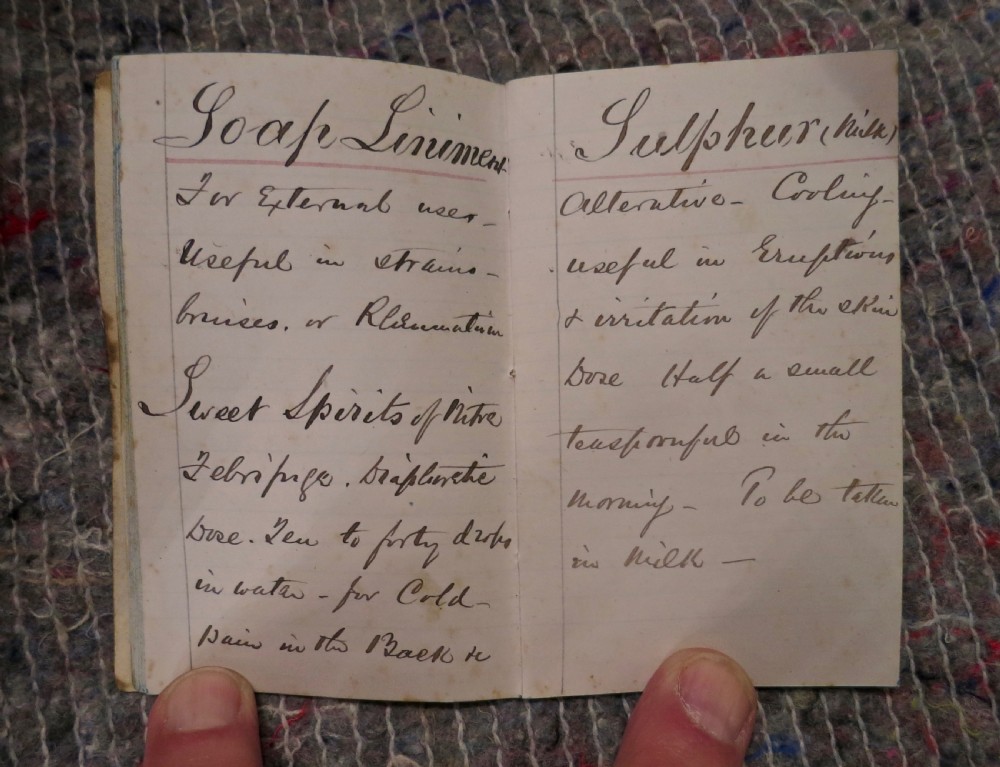 Soap Liniment
For External use -
Useful in strains -
bruises. or Rheumatism
Sweet Spirits of Nitre
Febrifuge. Diaphoretic
Dose. Ten to forty drops
in water - for Cold -
Pain in the Back &c
Sulphur (Milk)
Alterative - Cooling -
useful in Eruptions
& irritation of the skin
Dose Half a small
teaspoonful in the
morning - To be taken
in Milk -